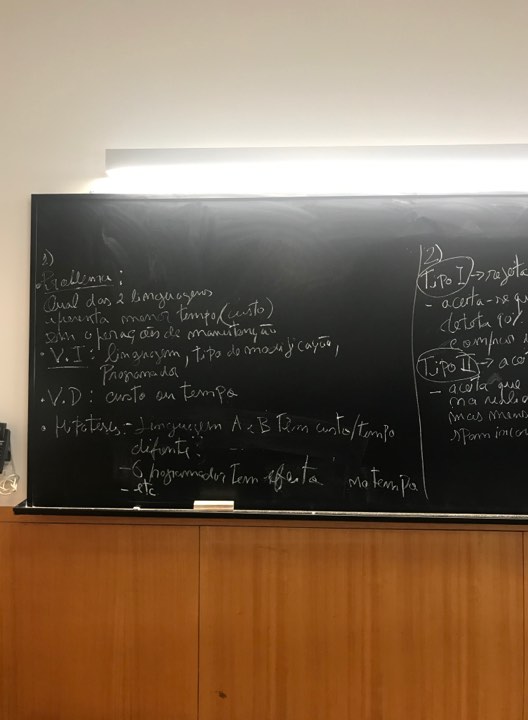 1)
Problema:
Qual das 2 linguagens
apresenta menor tempo (custo)
sob operações de manutenção
• V.I: linguagem, tipo de modificação,
Programador
• V.D: custo ou tempo
• Hipóteses: - Linguagem A e B têm custo/tempo
diferente
- O programador tem efeito no tempo
- etc
2)
Tipo I → rejeita
- aceita-se q
Tipo II → ace
- aceita que
mas